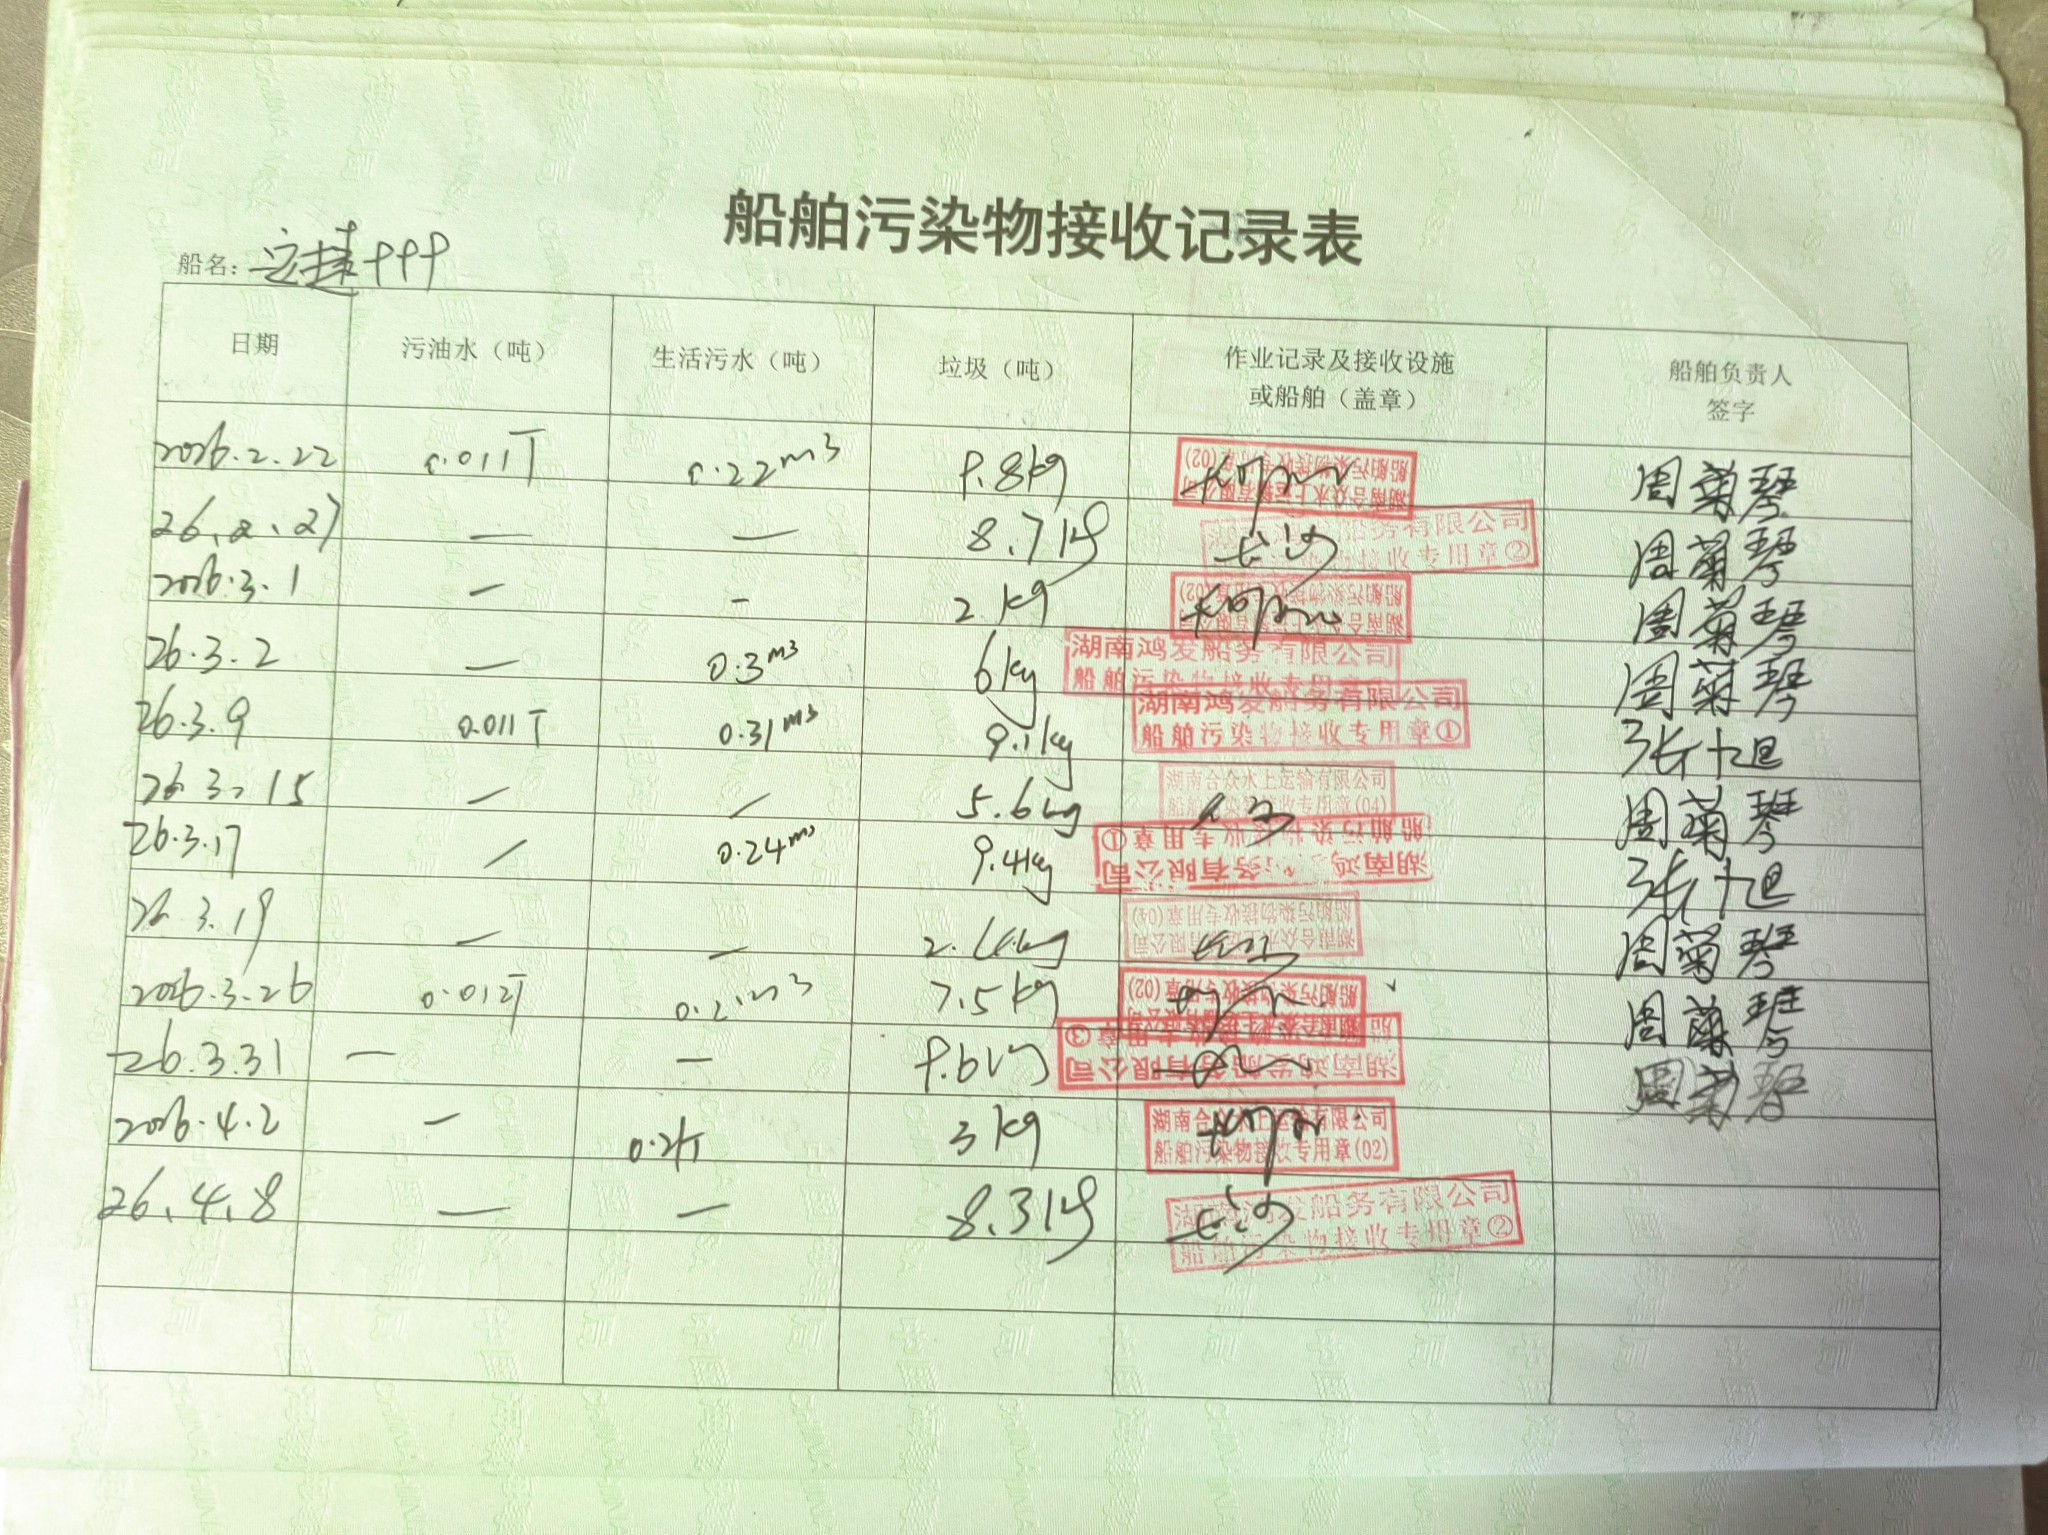 船舶污染物接收记录表
船名：
日期 污油水（吨） 生活污水（吨） 垃圾（吨） 作业记录及接收设施或船舶（盖章） 船舶负责人签字
2026.2.22 0.011T 0.22m3 9.8kg 湖南合众水上运输有限公司 船舶污染物接收专用章(02) 周菊琴
26.2.27 — — 8.7kg 长沙 船务有限公司 接收专用章② 周菊琴
2026.3.1 — - 2kg 周菊琴
26.3.2 — 0.3m3 6kg 湖南鸿发船务有限公司 船舶污染物接收专用章 周菊琴
26.3.9 0.011T 0.31m3 9.1kg 湖南鸿发船务有限公司 船舶污染物接收专用章① 张旭
26.3.15 — — 5.6kg 湖南合众水上运输有限公司 接收专用章(04) 周菊琴
26.3.17 — 0.24m3 9.4kg 湖南鸿 务有限公司 船舶污染物接收专用章① 张旭
26.3.19 — — 湖南合众水上运输有限公司 船舶污染物接收专用章(04) 周菊琴
2026.3.26 0.012T 7.5kg 船舶污染物接收专用章(02) 周菊琴
26.3.31 — — 9.6kg 湖南鸿发船务有限公司 接收专用章③ 周菊琴
2026.4.2 — 3kg 湖南合众水上运输有限公司 船舶污染物接收专用章(02)
26.4.8 — — 8.3kg 长沙 船务有限公司 船舶污染物接收专用章②